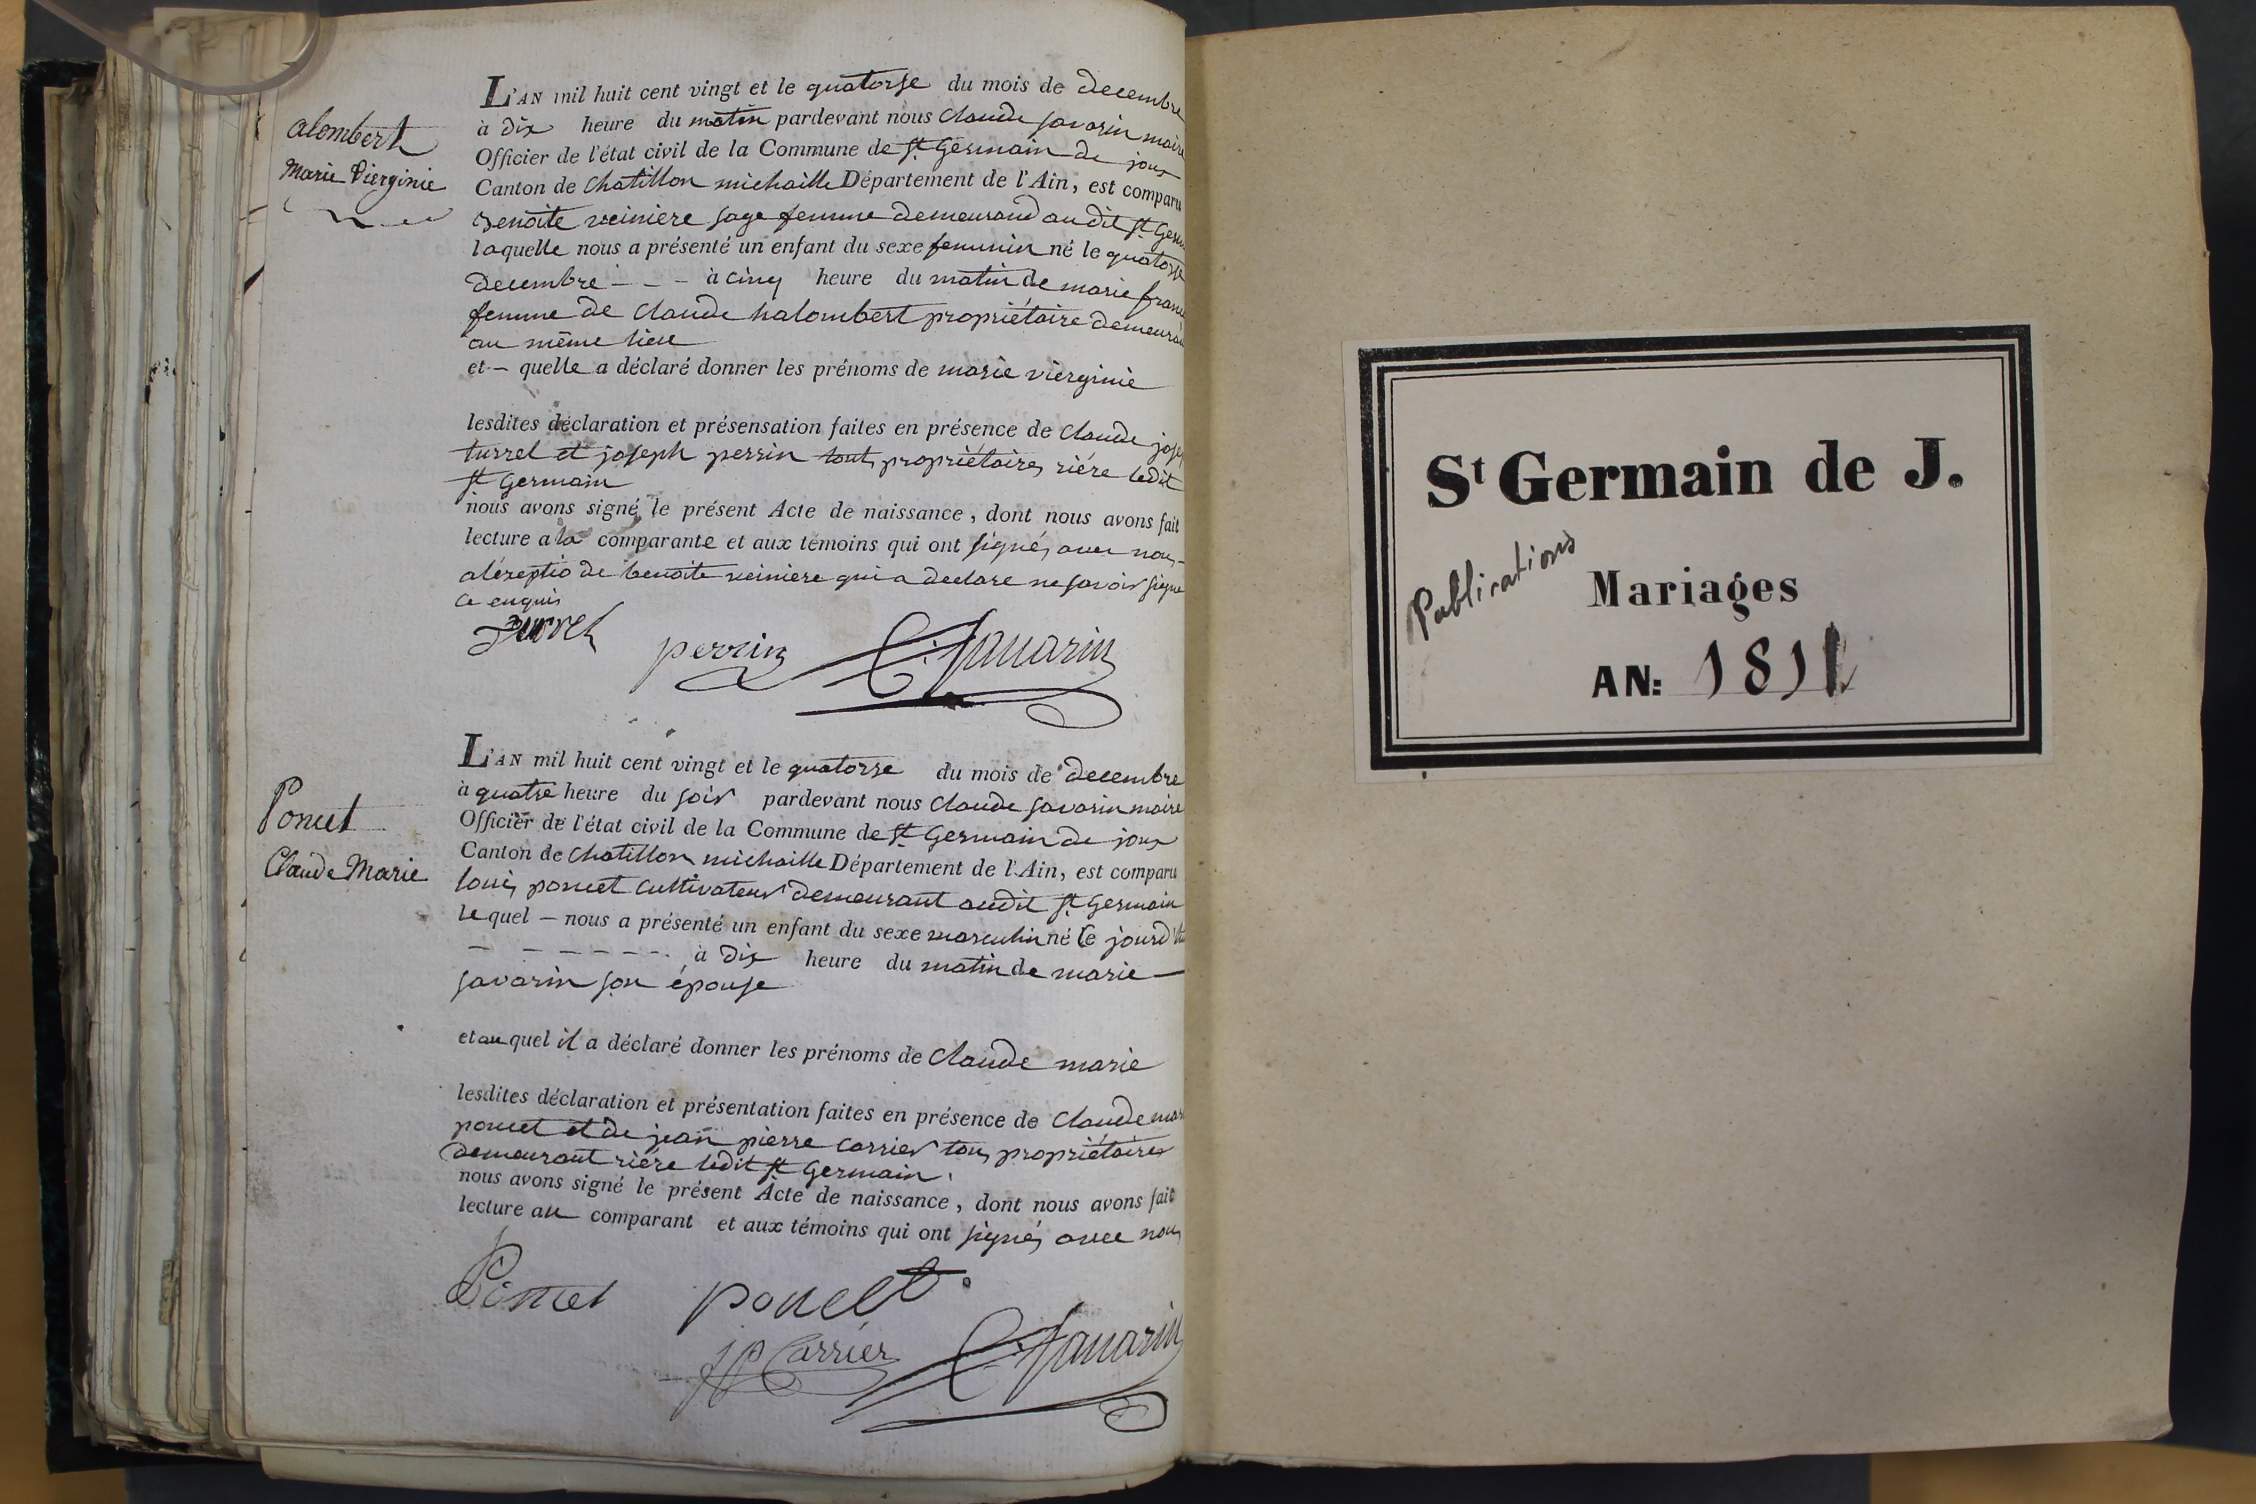 alombert
Marie Vierginie
L'AN mil huit cent vingt et le quatorse du mois de decembre
à dix heure du matin pardevant nous Claude savarin maire
Officier de l'état civil de la Commune de St Germain de joux
Canton de Chatillon michaille Département de l'Ain, est comparu
Benoite veiniere sage femme demeurand au dit St Germ
laquelle nous a présenté un enfant du sexe feminin né le quatorse
decembre - - - à cinq heure du matin de marie franc
femme de Claude halombert propriétaire demeura
au même lieu
et - quelle a déclaré donner les prénoms de marie vierginie
lesdites déclaration et présensation faites en présence de Claude josep
turrel et joseph perrin tout propriétaires riére ledit
St Germain
nous avons signé le présent Acte de naissance, dont nous avons fait
lecture a la comparante et aux témoins qui ont signés avec nous
aléxeptio de benoite veiniere qui a declare ne savoir signe
ce enquis
Turrel perrin C. Savarin
Poncet
Claude Marie
L'AN mil huit cent vingt et le quatorse du mois de decembre
à quatre heure du soir pardevant nous Claude savarin maire
Officier de l'état civil de la Commune de St Germain de joux
Canton de Chatillon michaille Département de l'Ain, est comparu
louis poncet cultivateur demeurant audit St Germain
le quel - nous a présenté un enfant du sexe masculin né le jourd'hu
- - - - - - - à dix heure du matin de marie -
savarin son épouse
et au quel il a déclaré donner les prénoms de Claude marie
lesdites déclaration et présentation faites en présence de Claude mar
poncet et de jean pierre carrier tous propriétaires
demeurant riére ledit St Germain.
nous avons signé le présent Acte de naissance, dont nous avons fait
lecture au comparant et aux témoins qui ont signés avec nous
Poncet poncet
JP Carrier C. Savarin
St Germain de J.
Publications
Mariages
AN: 181